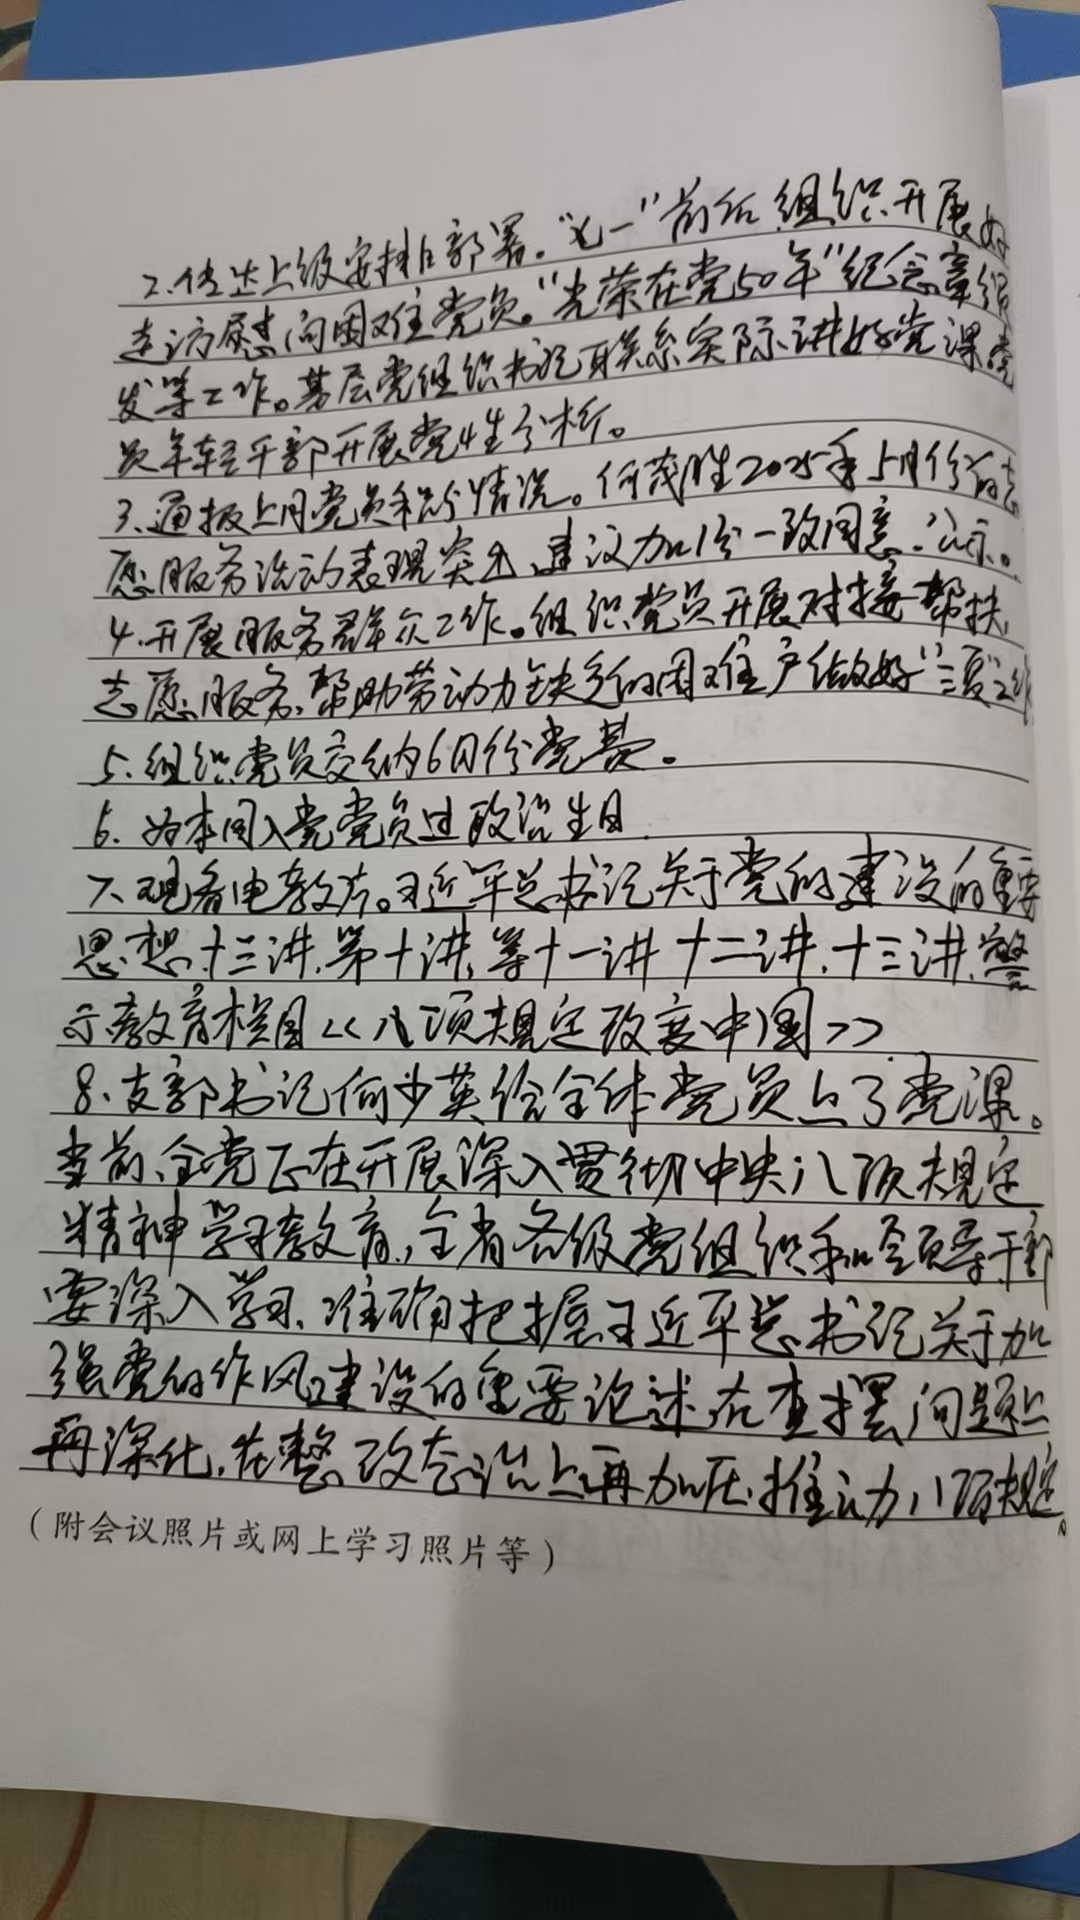 2.传达上级安排与部署。“七一”前后,组织开展好
走访慰问困难党员。“光荣在党50年”纪念章颁
发等工作。基层党组织书记要联系实际讲好党课,党
员年轻干部开展党性分析。
3.通报上月党员积分情况。何茂胜2025年5月份的志
愿服务活动表现突出,建议加1分一致同意,公示。
4.开展服务群众工作。组织党员开展对接帮扶,
志愿服务,帮助劳动力缺乏的困难户做好“三夏”工作
5.组织党员交纳6月份党费。
6.为本月入党党员过政治生日.
7.观看电教片。习近平总书记关于党的建设的重要
思想,十三讲,第十讲,等十一讲 十二讲,十三讲,警
示教育栏目<<八项规定改变中国>>
8.支部书记何少英给全体党员上了党课。
当前,全党正在开展深入贯彻中央八项规定
精神学习教育,全省各级党组织和领导干部
要深入学习,准确把握习近平总书记关于加
强党的作风建设的重要论述,在查摆问题上
再深化,在整改态治上再加压,推动八项规定。
(附会议照片或网上学习照片等)